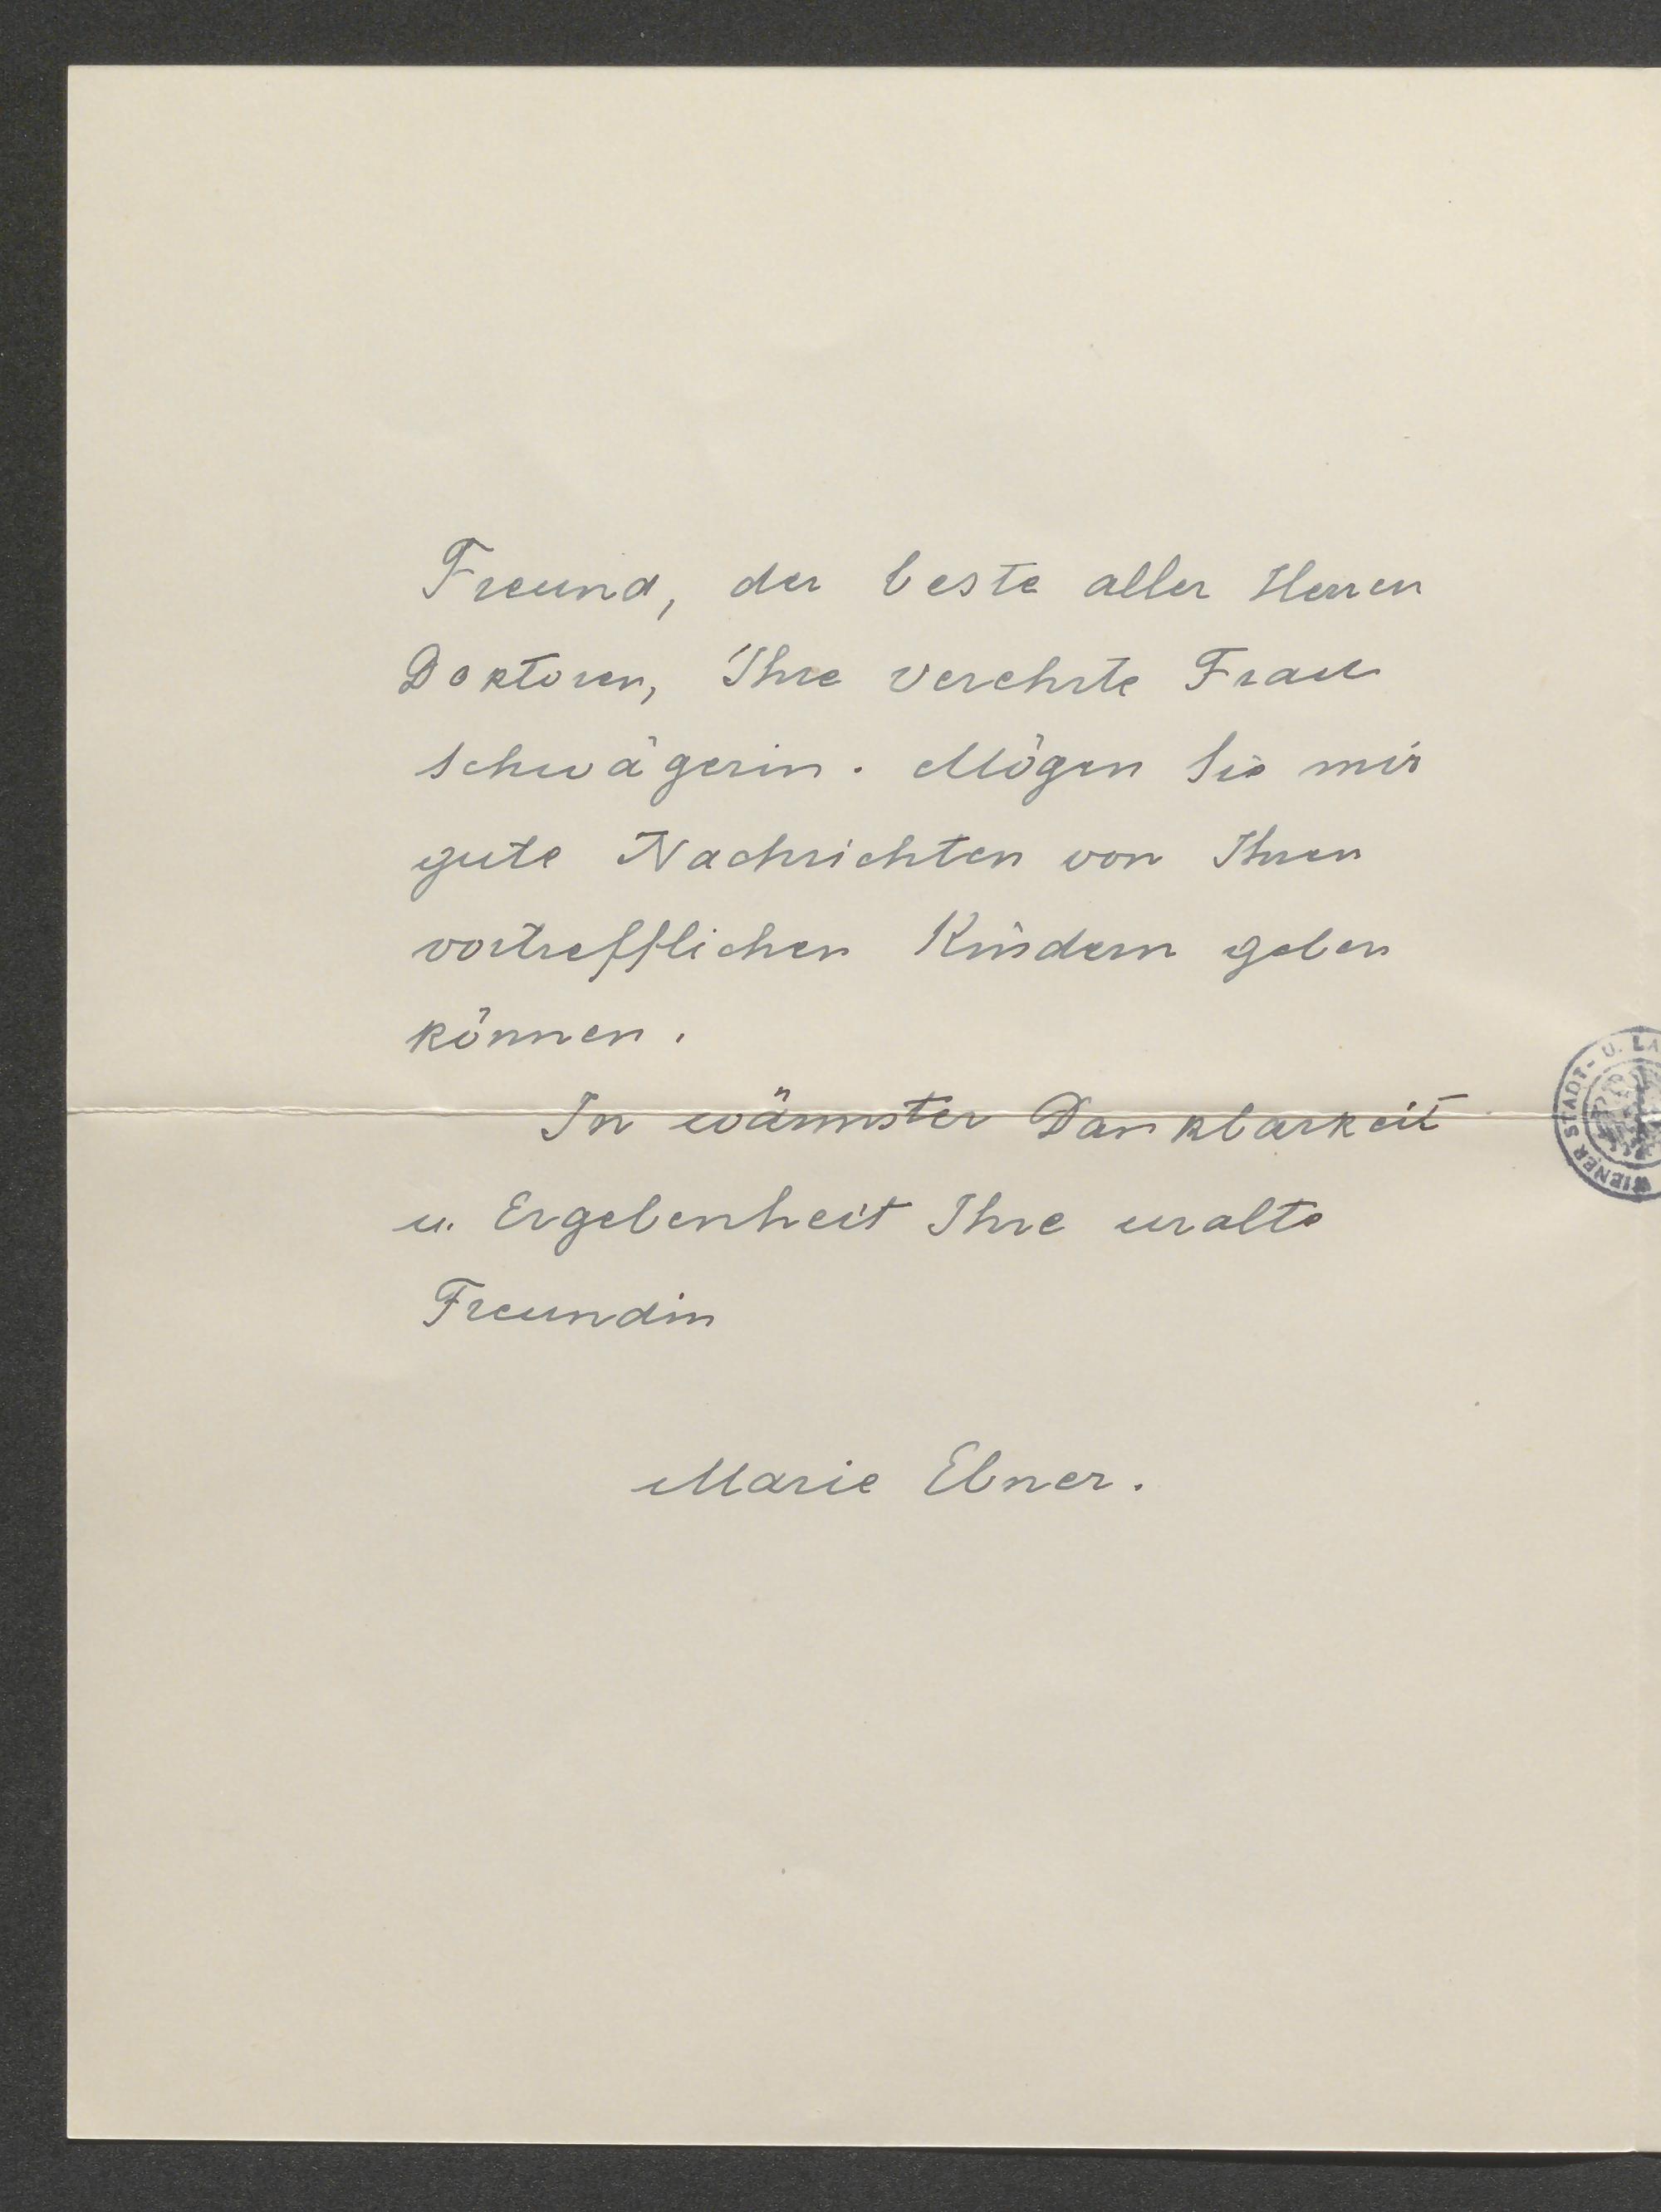 Freund, der beste aller Herren
Doktoren, Ihre verehrte Frau
Schwägerin. Mögen Sie mir
gute Nachrichten von Ihren
vortrefflichen Kindern geben
können.
In wärmster Dankbarkeit
u. Ergebenheit Ihre uralte
Freundin
Marie Ebner.
WIENER STADT- U. LA